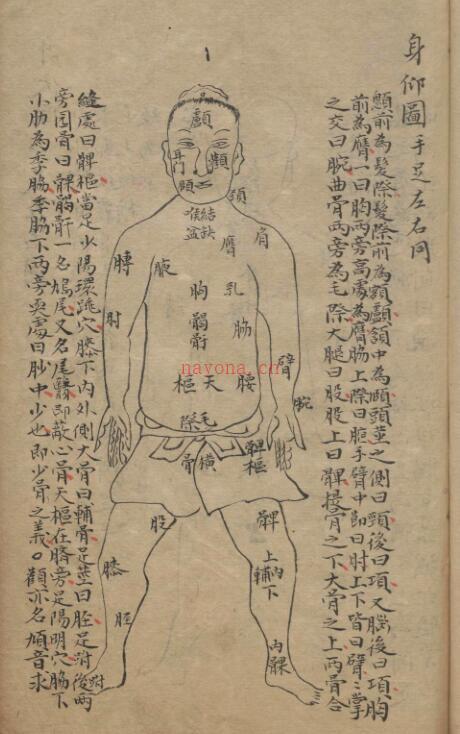 身仰圖 手足左右同
顖前為髮際髮際前為額顱頷中為頤頭莖之側曰頸後曰項又腦後曰項胸
前為膺一曰胸两旁高處為膺脇上際曰腋手臂中節曰肘上下皆曰臂〻掌
之交曰腕曲骨两旁為毛際大腿曰股股上曰髀楗骨之下大骨之上两骨合
顱
耳門
頤
頸
結喉
缺盆
肩
膺
膊
腋
胸
乳
肘
𩩲骬
脇
臂
腕
天樞
腰
毛際
橫骨
髀樞
股
髀
膝
上内輔下
脛
内踝
跗
縫處曰髀樞當足少陽環跳穴膝下内外側大骨曰輔骨足莖曰脛足跗後两
旁圓骨曰髁𩩲骬一名鳩尾又名尾翳即蔽心骨天樞在臍旁是陽明穴脇下
小肋為季脇季脇下两旁耎處曰䏚中少也即少骨之義〇顴亦名頄音求
nayona.cn